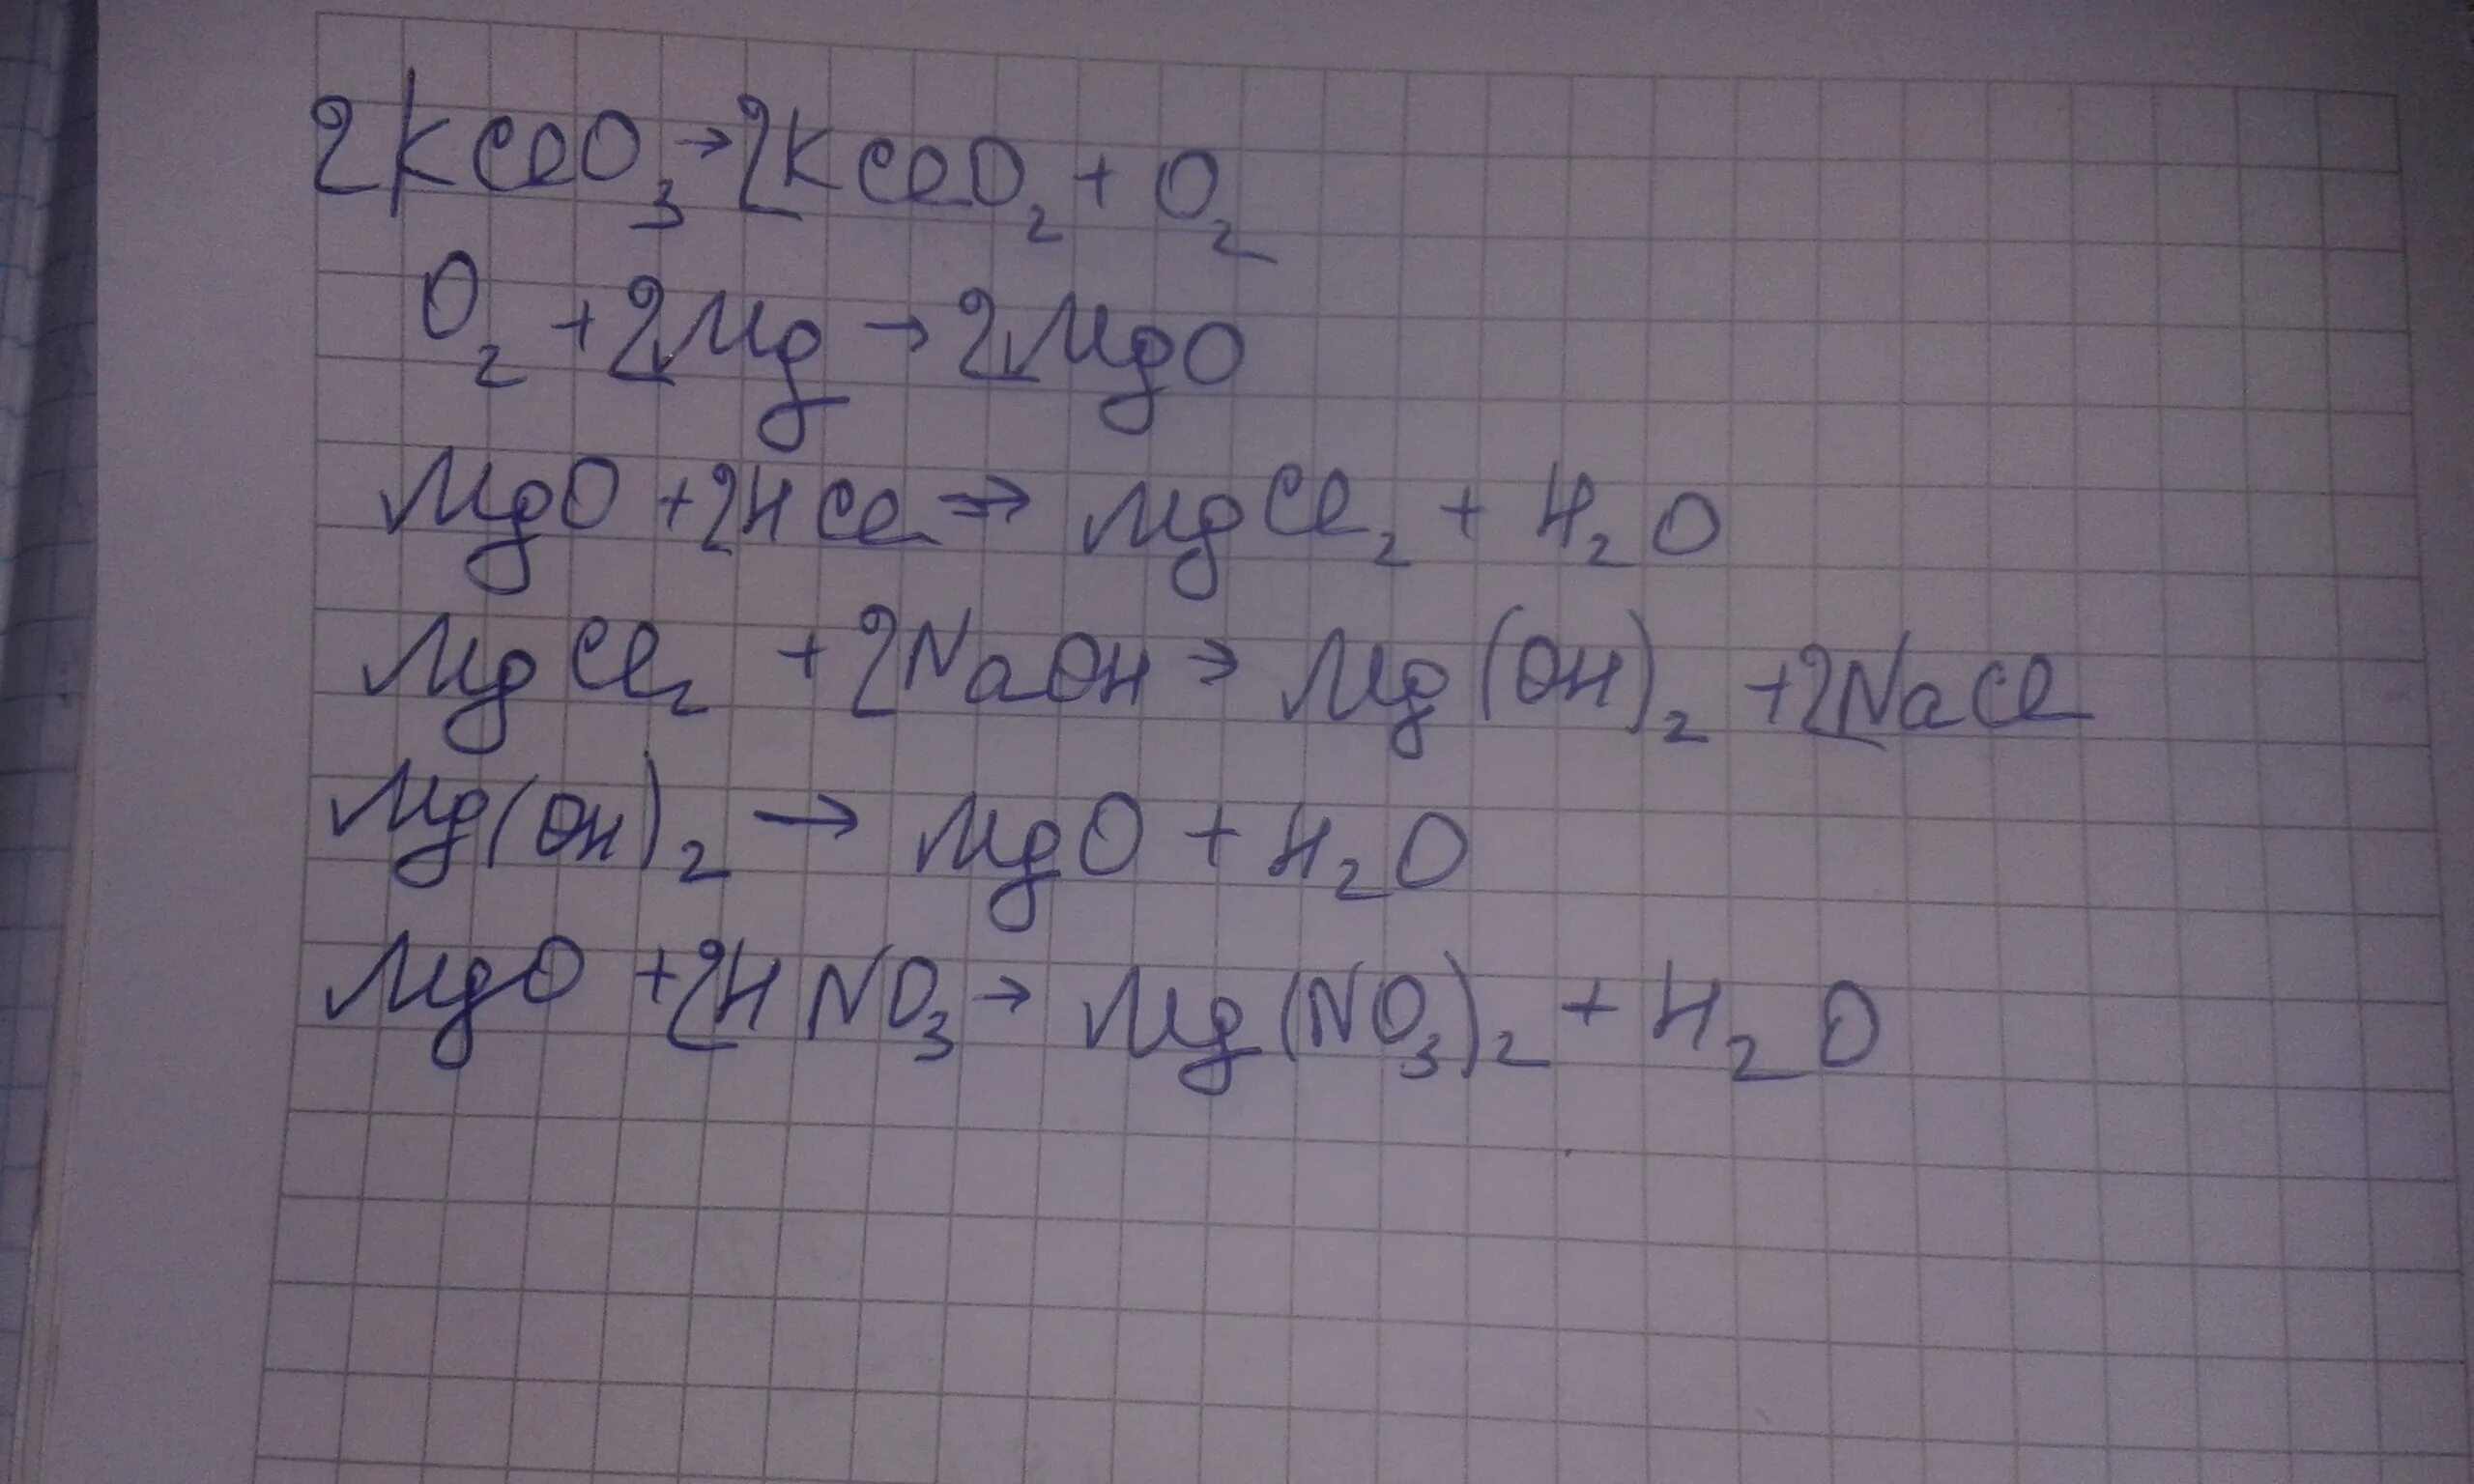 2KClO₃ → 2KClO₂ + O₂
O₂ + 2Mg → 2MgO
MgO + 2HCl → MgCl₂ + H₂O
MgCl₂ + 2NaOH → Mg(OH)₂ + 2NaCl
Mg(OH)₂ → MgO + H₂O
MgO + 2HNO₃ → Mg(NO₃)₂ + H₂O